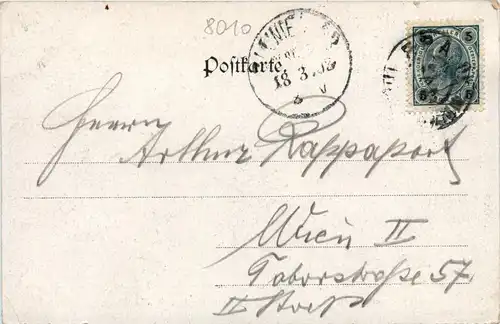 8010
Postkarte
18 3 03
5 5
6 6
Herrn
Arthur Rappaport
Wien II
Taborstraße 57
II Stock